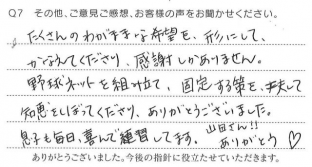 Q7 その他、ご意見ご感想、お客様の声をお聞かせください。
たくさんのわがままな希望を、形にして、
かなえてくださり、感謝しかありません。
野球ネットを組み立て、固定する策を、夫して
知恵をしぼってくださり、ありがとうございました。
息子も毎日、喜んで練習してます。山田さん!!
ありがとう♡
ありがとうございました。今後の指針に役立たせていただきます。